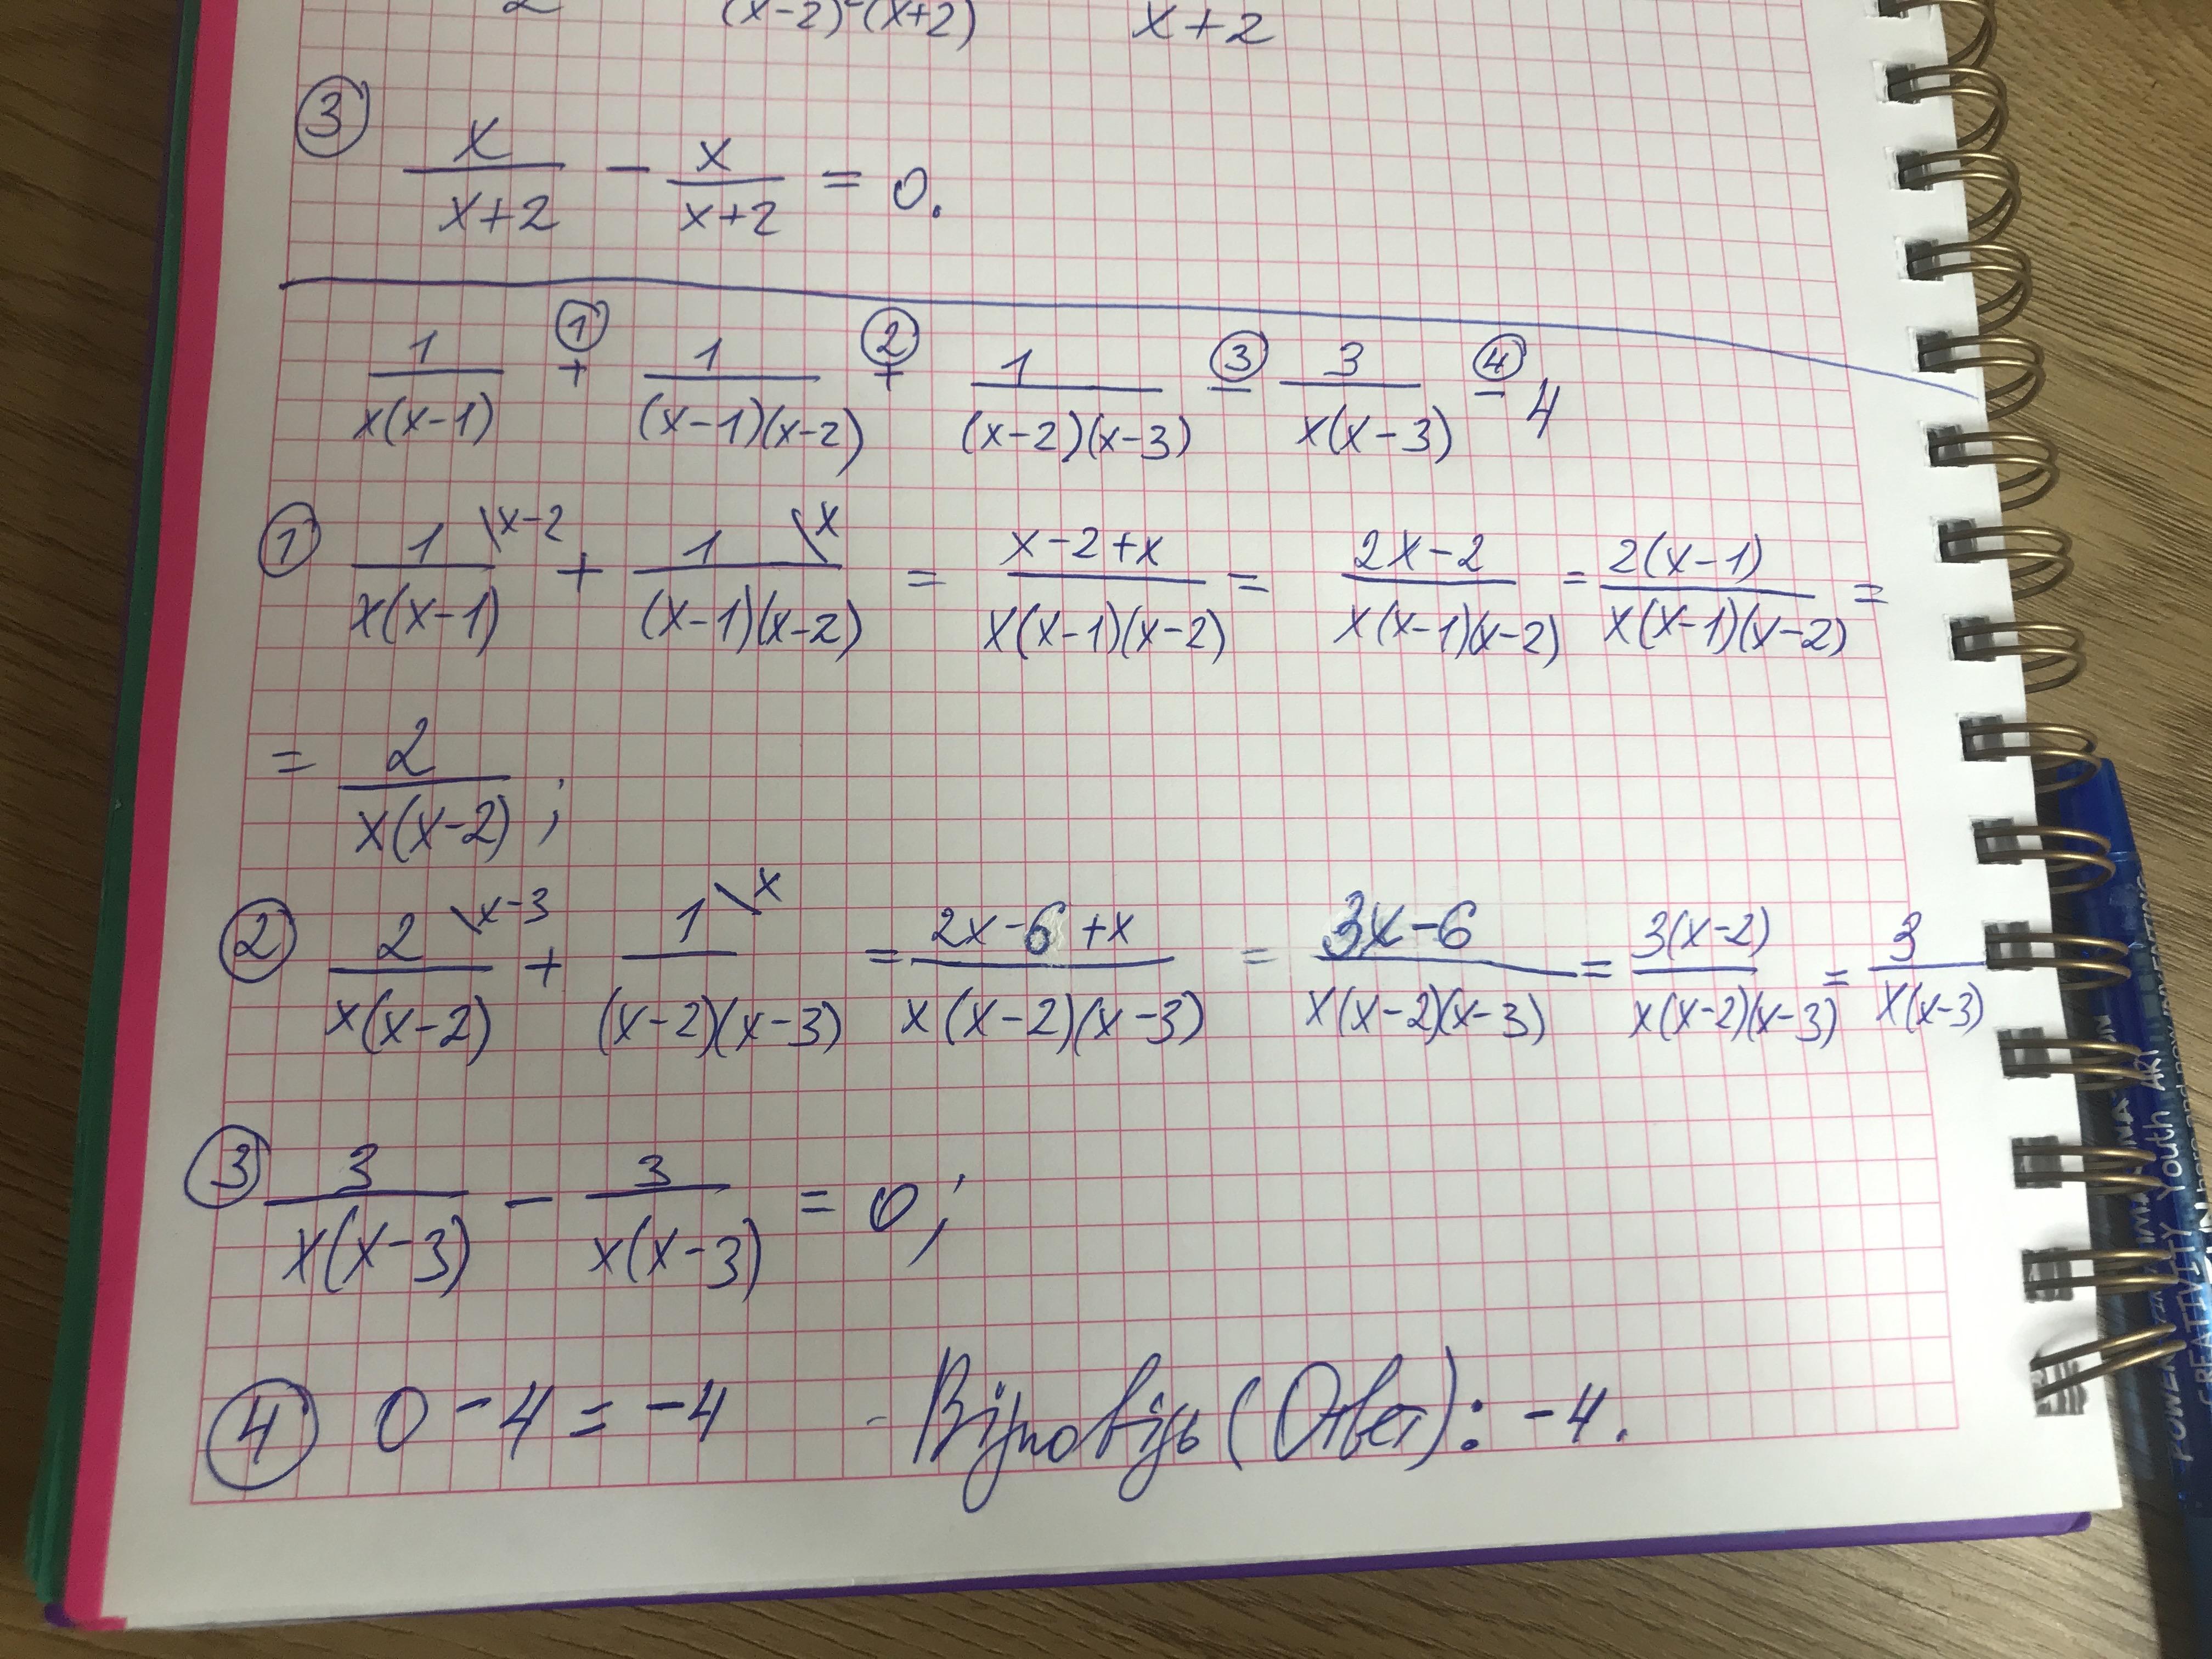 (x-2)²(x+2) x+2
③ x/(x+2) - x/(x+2) = 0.
1/(x(x-1)) ①+ 1/((x-1)(x-2)) ②+ 1/((x-2)(x-3)) ③- 3/(x(x-3)) ④- 4
① 1\x-2/(x(x-1)) + 1\x/((x-1)(x-2)) = (x-2+x)/(x(x-1)(x-2)) = (2x-2)/(x(x-1)(x-2)) = 2(x-1)/(x(x-1)(x-2)) =
= 2/(x(x-2));
② 2\x-3/(x(x-2)) + 1\x/((x-2)(x-3)) = (2x-6+x)/(x(x-2)(x-3)) = (3x-6)/(x(x-2)(x-3)) = 3(x-2)/(x(x-2)(x-3)) = 3/(x(x-3))
③ 3/(x(x-3)) - 3/(x(x-3)) = 0;
④ 0-4=-4 - Відповідь (Ответ): -4.
POWER IMAGINATION
CREATIVITY Youth ART